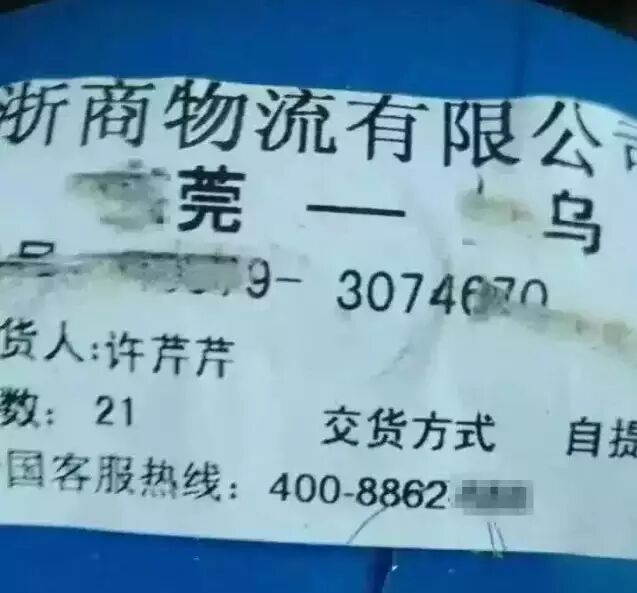 浙商物流有限公司
莞 — 乌
9- 3074670
货人:许芹芹
数: 21 交货方式 自提
国客服热线: 400-8862